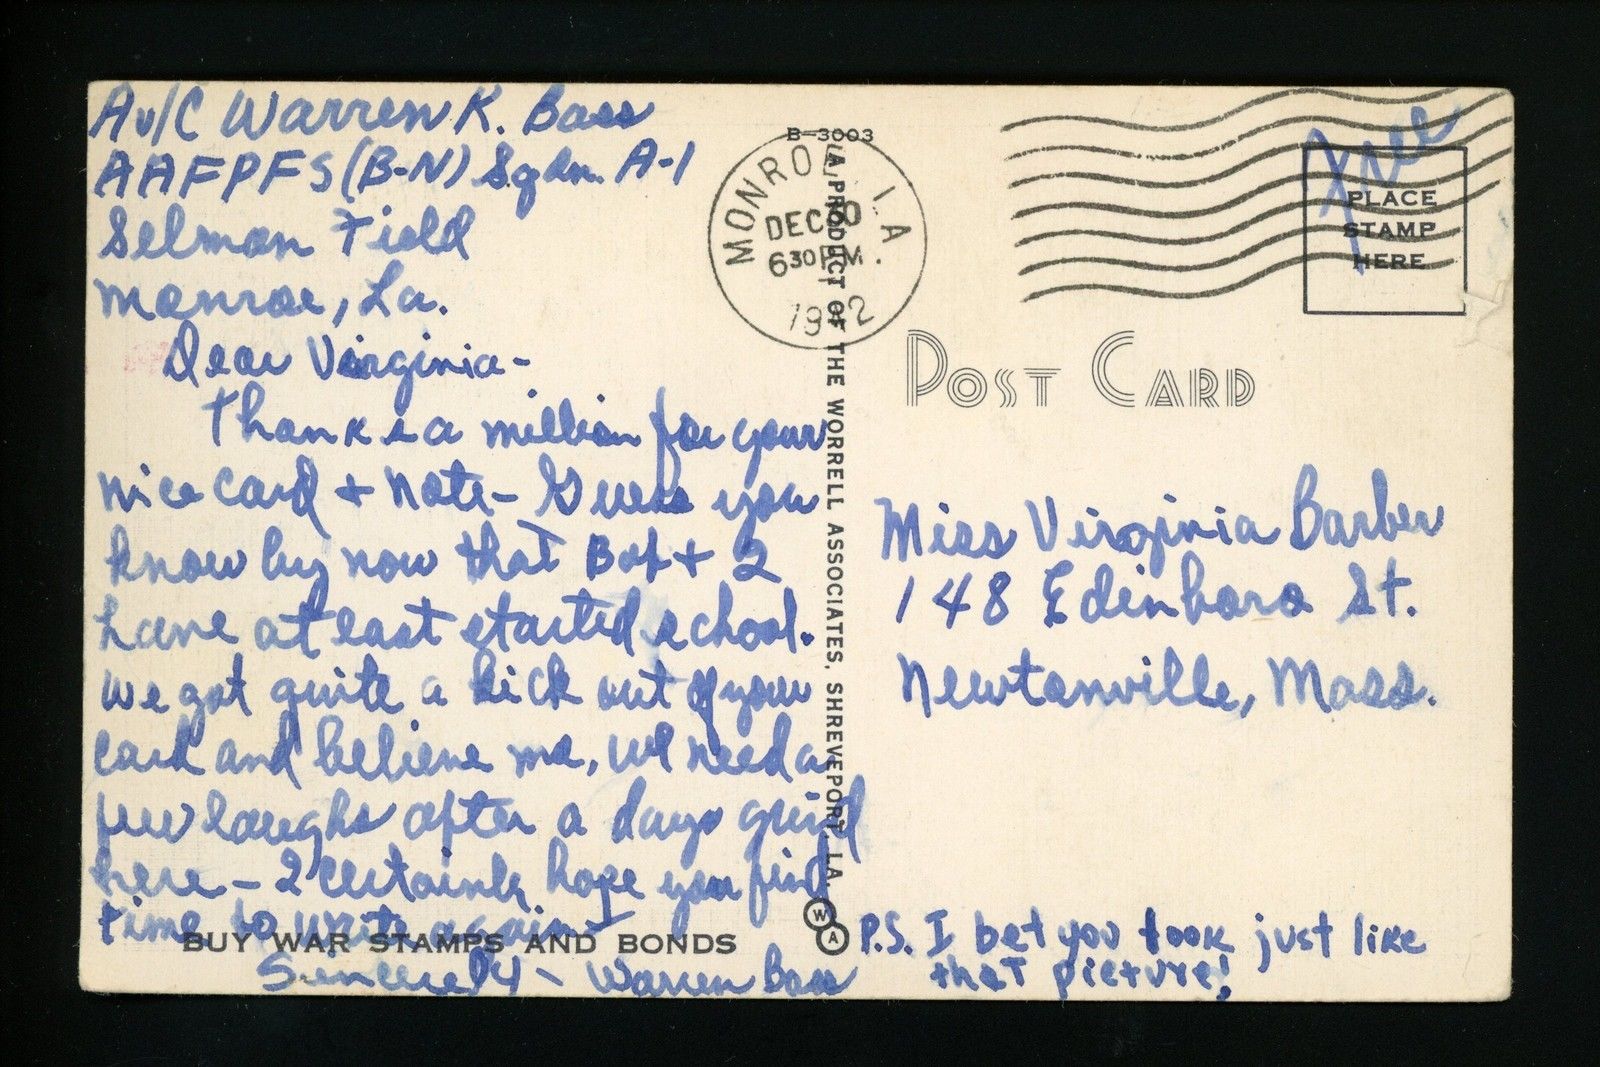 Av/C Warren K. Bass
AAFPFS (B-N) Sqdn. A-1
Selman Field
Monroe, La.
Dear Virginia-
Thanks a million for your
nice card + note- Guess you
know by now that Bob + I
have at last started school.
We got quite a kick out of your
card and believe me, we need a
few laughs after a days grind
here - I certainly hope you find
time to write again -
BUY WAR STAMPS AND BONDS
Sincerely - Warren Bass
B-3003
A PRODUCT OF THE WORRELL ASSOCIATES, SHREVEPORT, LA.
WA
MONROE LA
DEC 10
630 PM.
1942
Free
PLACE
STAMP
HERE
POST CARD
Miss Virginia Barber
148 Edinboro St.
Newtonville, Mass.
P.S. I bet you took just like
that picture!